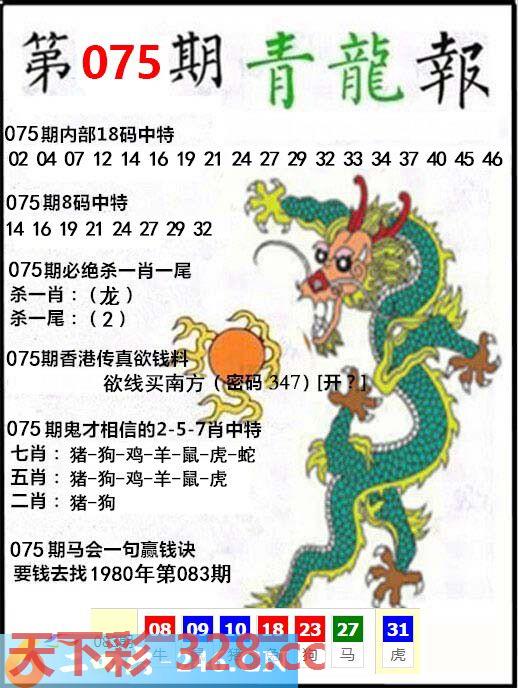 第075期青龍報
075期内部18码中特
02 04 07 12 14 16 19 21 24 27 29 32 33 34 37 40 45 46
075期8码中特
14 16 19 21 24 27 29 32
075期必绝杀一肖一尾
杀一肖：（龙）
杀一尾：（2）
075期香港传真欲钱料
欲线买南方（密码 347）[开？]
075期鬼才相信的2-5-7肖中特
七肖：猪-狗-鸡-羊-鼠-虎-蛇
五肖：猪-狗-鸡-羊-鼠-虎
二肖：猪-狗
075期马会一句赢钱诀
要钱去找1980年第083期
08 09 10 18 23 27 31
083期 牛 狗 马 虎
天下彩 328.cc